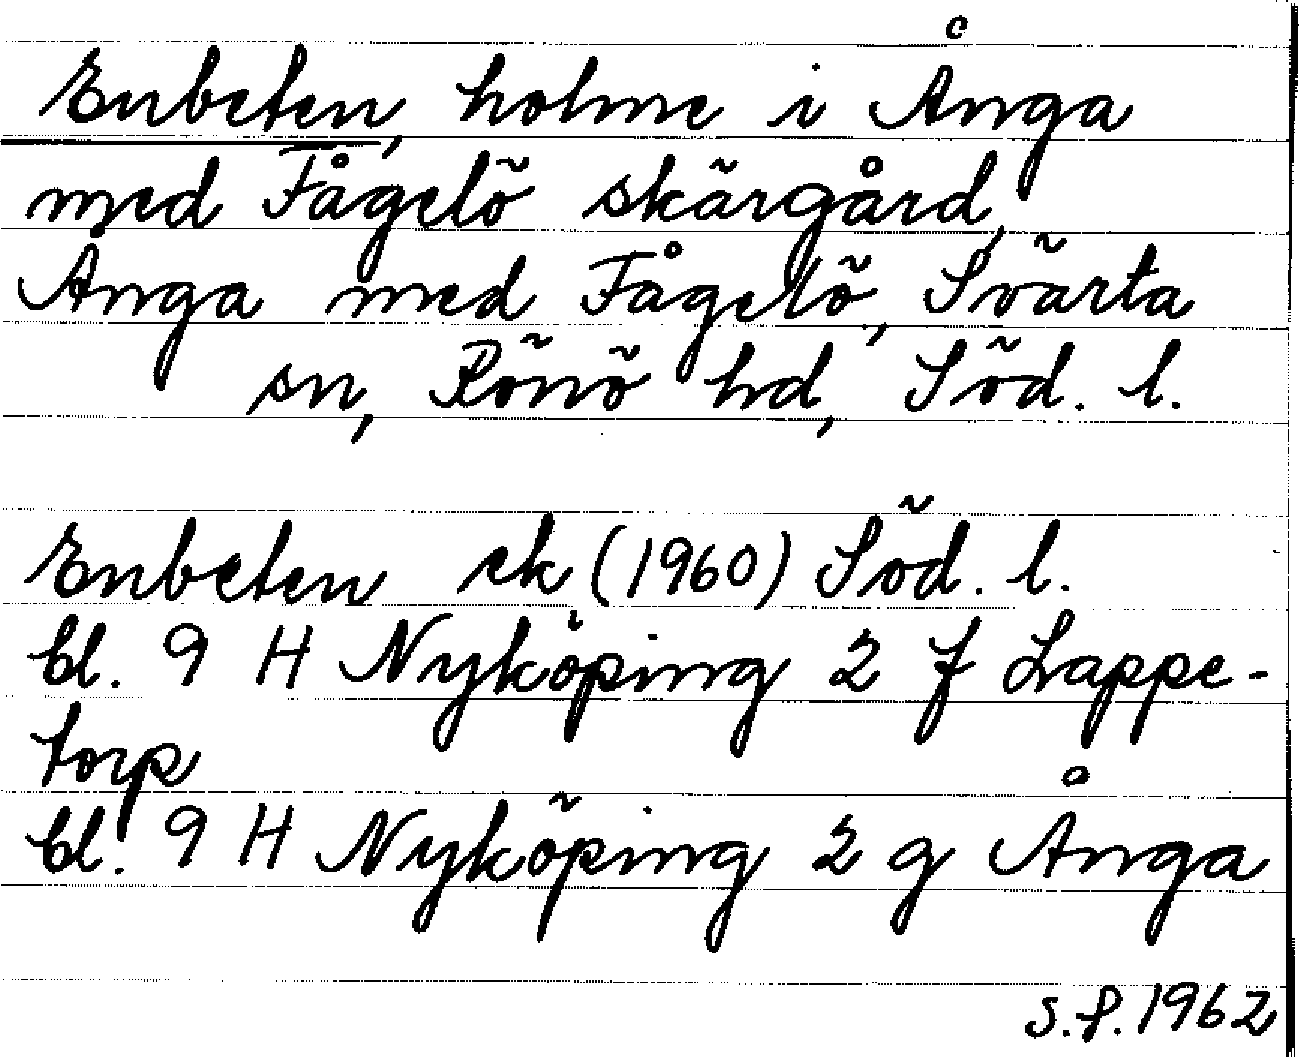 Enbeten, holme i Ånga
med Fågelö skärgård,
Ånga med Fågelö, Svärta
sn, Rönö hd, Söd. l.
Enbeten ek (1960) Söd. l.
bl. 9 H Nyköping 2 f Lappe-
torp
bl. 9 H Nyköping 2 g Ånga
S.F. 1962